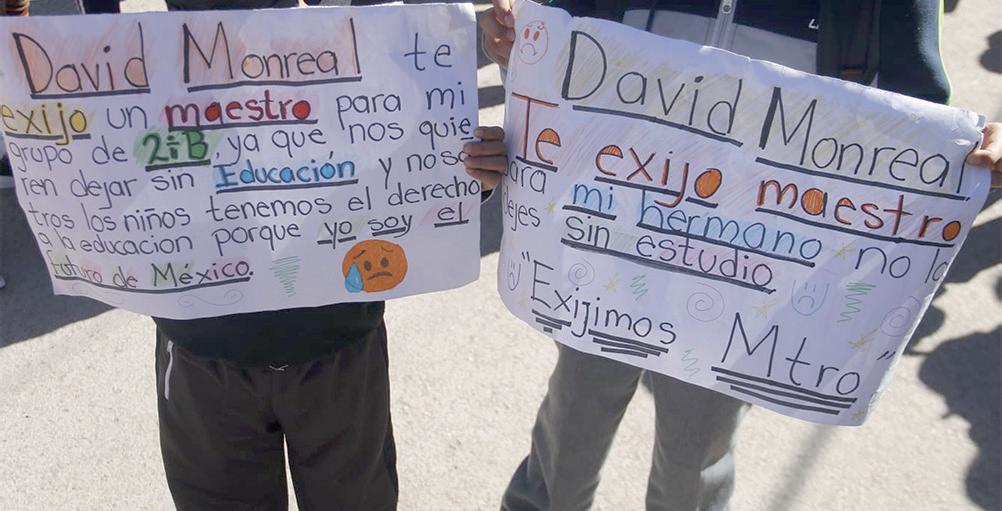 David Monreal te
exijo un maestro para mi
grupo de 2ºB, ya que nos quie
ren dejar sin Educación y noso
tros los niños tenemos el derecho
a la educacion porque yo soy el
futuro de México.
David Monreal
Te exijo maestro
para mi hermano no lo
dejes sin estudio
"Exijimos Mtro"